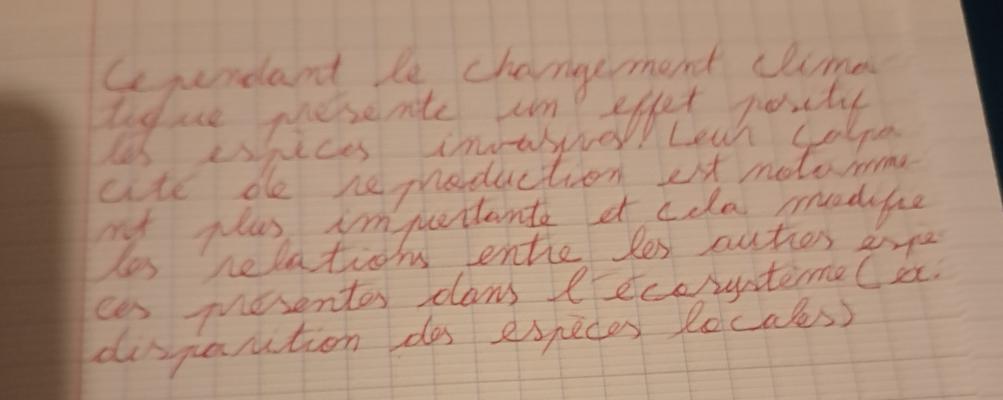 Cependant le changement clima
tique présente un effet positif
les espèces invasives. Leur capa
cité de reproduction est notamme
nt plus importante et cela modifie
les relations entre les autres espè
ces présentes dans l'écosystème (ex:
disparition des espèces locales)